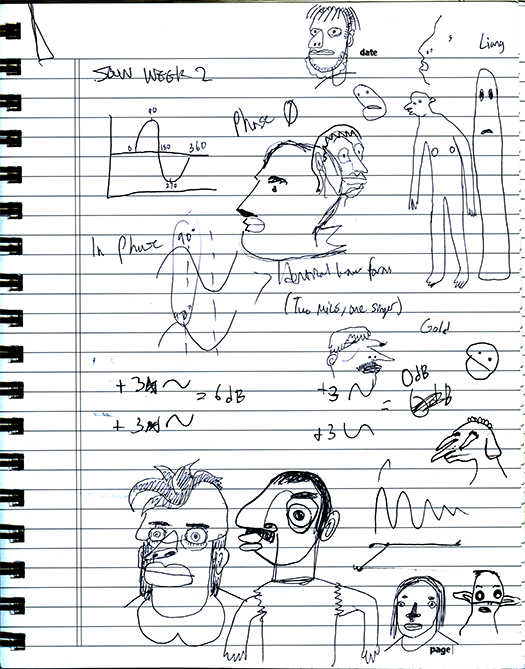 date
Liang
SOW WEEK 2
Phase Ø
90
0 180 360
270
In Phase
90°
90°
Identical wave forms
(Two mics, one singer)
Gold
+3 = 6dB
+3
+3 = 0dB
+3
page